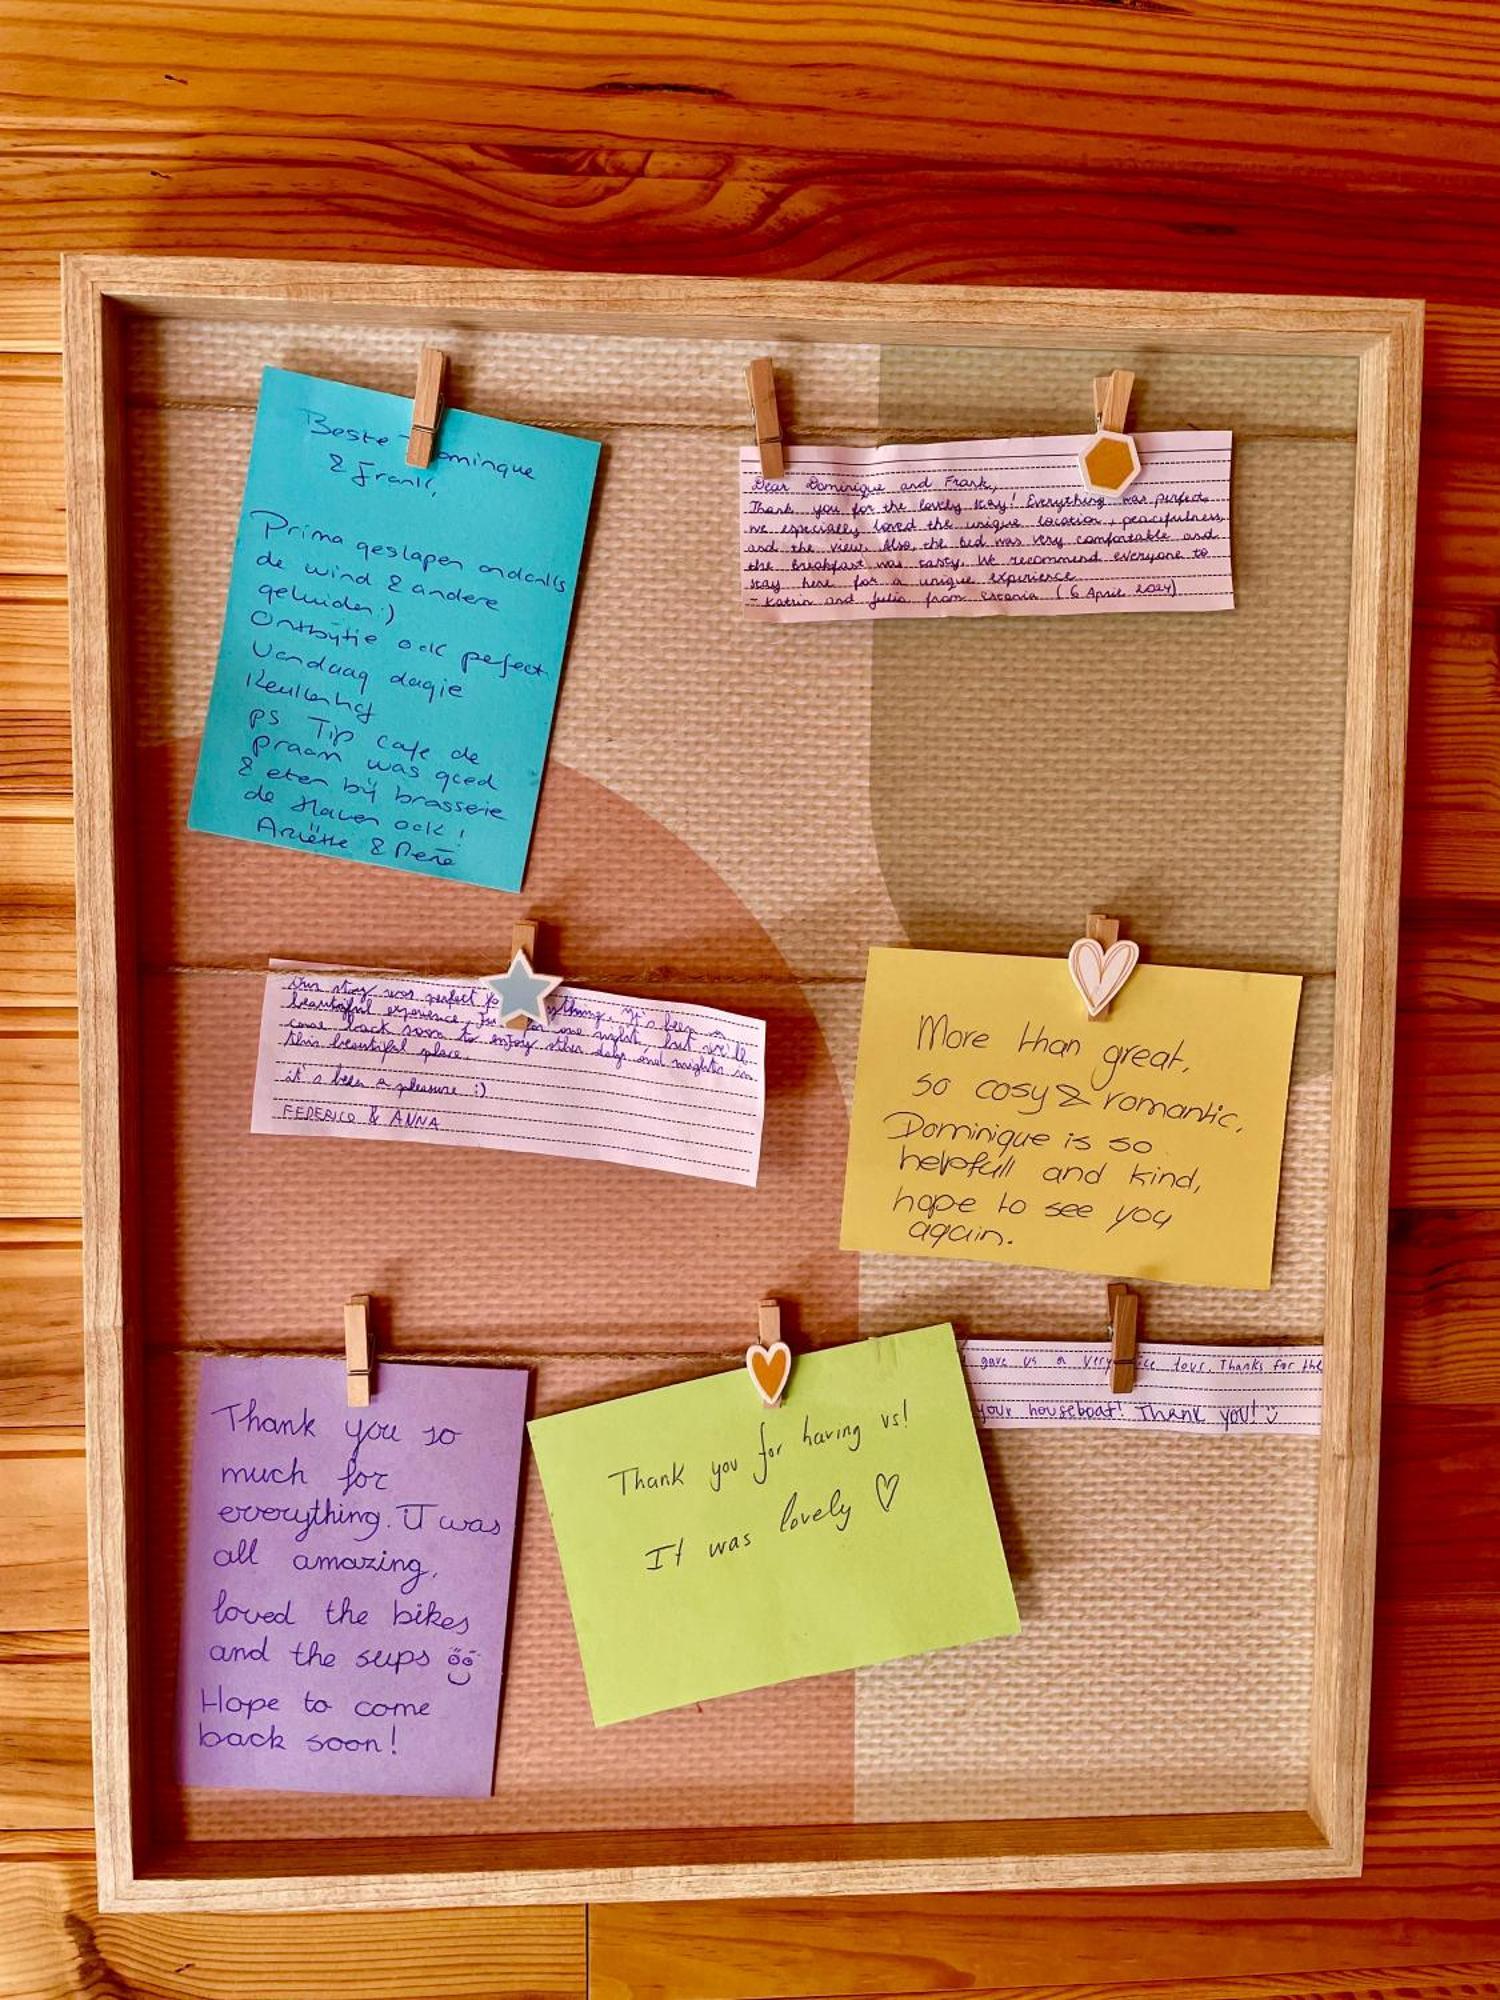 Beste Dominque
& Frank,
Prima geslapen ondanks
de wind & andere
geluiden :)
Ontbijtje ook perfect
Vandaag dagje
Keukenhof
ps Tip cafe de
praam was goed
& eten bij brasserie
de Haven ook !
Ariëtte & René
Dear Dominique and Frank,
Thank you for the lovely stay! Everything was perfect,
we especially loved the unique location, peacefulness,
and the view. Also, the bed was very comfortable and
the breakfast was tasty. We recommend everyone to
stay here for a unique experience
- Katrin and Julia from Estonia (6 April 2024)
Our stay was perfect ything. It's been a
beautiful experience, for one night, but we'll
come back soon to enjoy other days and nights in
this beautiful place.
it's been a pleasure :)
FEDERICO & ANNA
More than great,
so cosy & romantic.
Dominique is so
helpfull and kind,
hope to see you
again.
Thank you so
much for
everything. It was
all amazing,
loved the bikes
and the sups
Hope to come
back soon!
Thank you for having us!
It was lovely ♡
gave us a very ice tour. Thanks for the
your houseboat! Thank you! :)